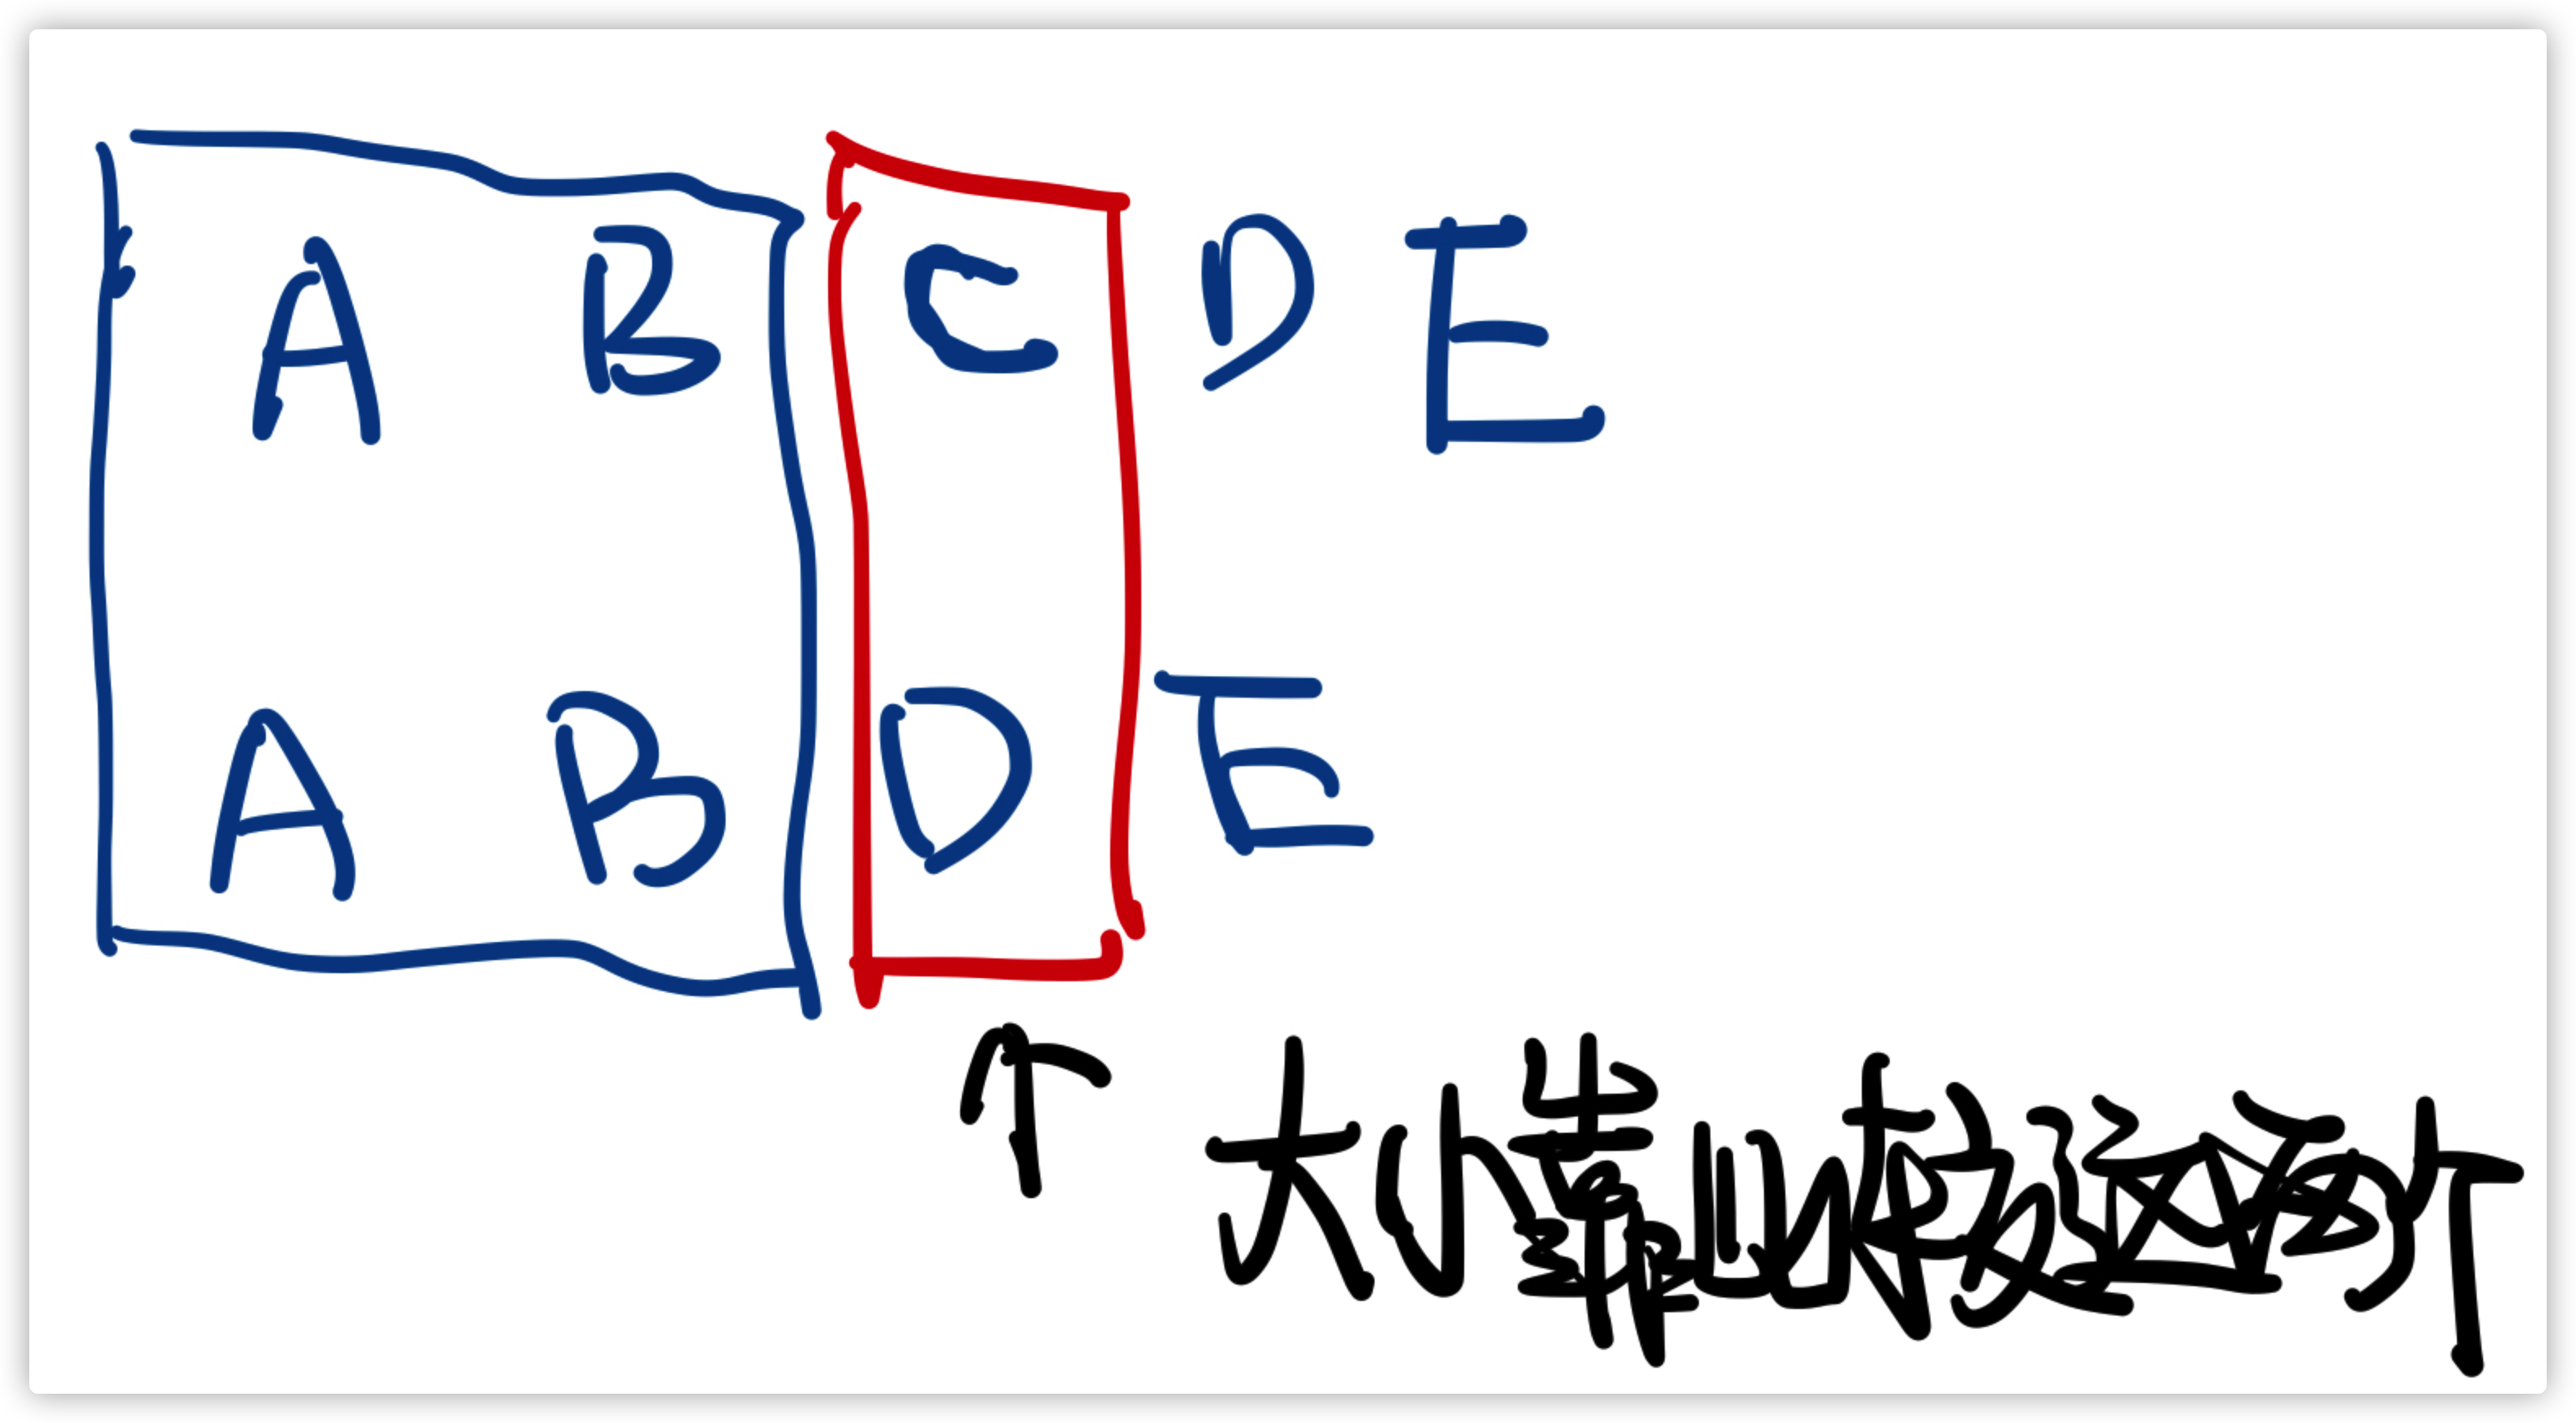 A B C D E
A B D E
↑ 大小靠比较这两个